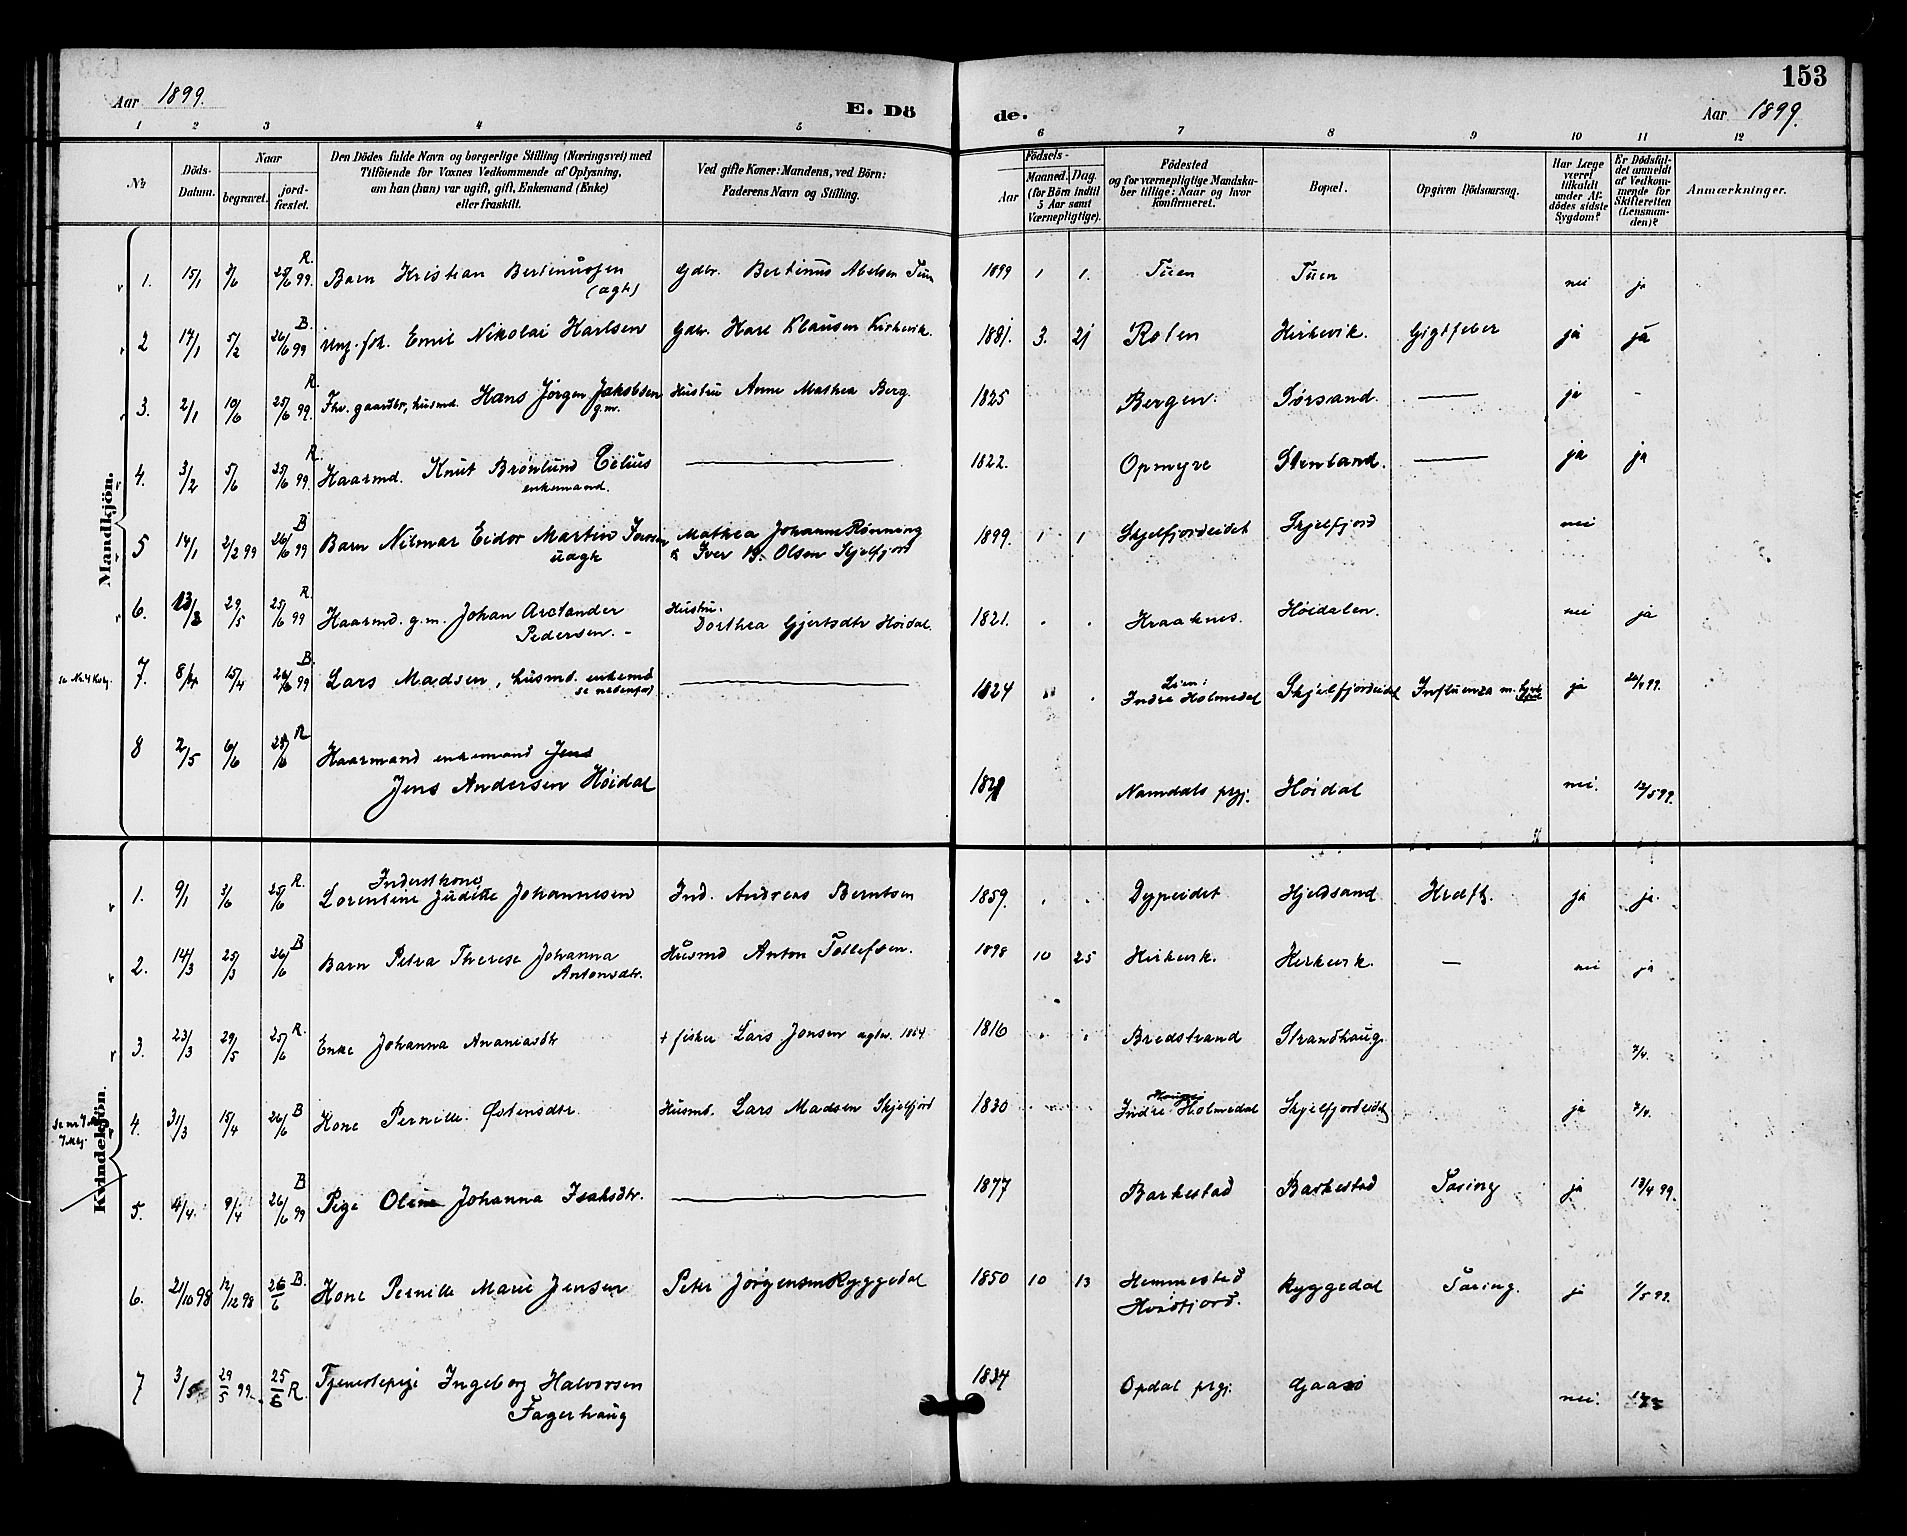 153
Aar 1899.
E. Dö
de.
Aar 1899.
1 2 3 4 5 6 7 8 9 10 11 12
No
Döds-
Datum.
Naar
begravet.
jord-
fæstet.
Den Dödes fulde Navn og borgerlige Stilling (Næringsvei) med
Tilföiende for Voxnes Vedkommende af Oplysning,
om han (hun) var ugift, gift, Enkemand (Enke)
eller fraskilt.
Ved gifte Koner: Mandens, ved Börn:
Faderens Navn og Stilling.
Födsels-
Aar
Maaned. Dag.
(for Börn indtil
5 Aar samt
Værnepligtige).
Födested
og for værnepligtige Mandska-
ber tillige: Naar og hvor
konfirmeret.
Bopæl.
Opgiven Dödsaarsag.
Har Læge
været
tilkaldt
under Af-
dödes sidste
Sygdom?
Er Dödsfal-
det anmeldt
af Vedkom-
mende for
Skifteretten
(Lensman-
den)?
Anmærkninger.
Mandkjön.
1. 15/1 3/6 25/6 99. R. Barn Kristian Bertinussen Gdbr. Bertinus Abelsen Tuen 1899 1 1. Tuen Tuen nei ja
(ægte)
2 17/1 5/2 26/6 99 B. Ung. fsk. Emil Nikolai Karlsen Gdbr. Karl Klausen Kirkevik 1881. 3. 21 Roten Kirkevik. Gigtfeber ja ja
3. 2/1 10/6 25/6 99. R. Fhv. gaardbr, husmd. Hans Jørgen Jakobsen Hustru Anne Mathea Berg. 1825 Bergen. Sørsand. — ja -
g.m.
4. 3/2 5/6 25/6 99. R. Kaarmd. Knut Brønlund Celius — 1822. Opmyre Stenland. — ja ja
enkemand.
5 14/1 2/2 99 26/6 99 B Barn Hilmar Eidor Martin Iversen Mathea Johanne Rønning 1899. 1 1 Skjelfjordeidet Skjelfjord nei
uægte & Iver B. Olsen Skjelfjord
6. 13/3 29/5 25/6 99 R. Kaarmd. g.m. Johan Arctander Hustru. 1821. Kraaknes. Høidalen. nei ja
Pedersen. Dorthea Gjertsdtr Høidal.
7. 8/4 15/4 26/6 99 B. Lars Madsen, husmd. enkemd — 1824 Indre Holmedal Skjelfjordeidet Influenza m. ja 20/4 99.
se nedenfor)
8 2/5 6/6 25/6 R Kaarmand enkemand Jens
Jens Andersen Høidal 1821 Namdals prgj. Høidal nei. 12/5 99.
Kvindekjön.
1. 9/1 3/6 25/6 R. Inderstkone
Lorentine Judithe Johannesen Ind. Andreas Berntsen 1859. Dypeidet Hjeldsand Kræft. ja ja.
2. 14/3 25/3 26/6 B Barn Petra Therese Johanna Husmd Anton Tollefsen. 1898 10 25 Kirkevik. Kirkevik. — nei ja
Antonsdtr.
3. 23/3 29/5 25/6 R. Enke Johanna Ananiasdtr + fisker Lars Jonsen 1816 Bredstrand Strandhaug 7/4.
4. 31/3 15/4 26/6 B Kone Pernille Østensdtr. Husmd. Lars Madsen Skjelfjord 1830 Indre Holmedal Skjelfjordeidet ja 7/4.
5. 4/4. 9/4 26/6 99 B Pige Oline Johanna Isaksdtr. — 1877 Barkestad Barkestad Tæring ja 13/4 99.
6. 21/10 98 12/12 98 26/6 B. Kone Pernille Marie Jensen Peter Jørgensen Ryggedal 1850 10 13 Hemmestad Ryggedal Tæring. ja 1/5 99.
Kvæfjord.
7 3/5 29/5 99. 25/6 R. Tjenestepige Ingeborg Halvorsen 1834 Opdal prgj. Gaasø nei.
Fagerhaug